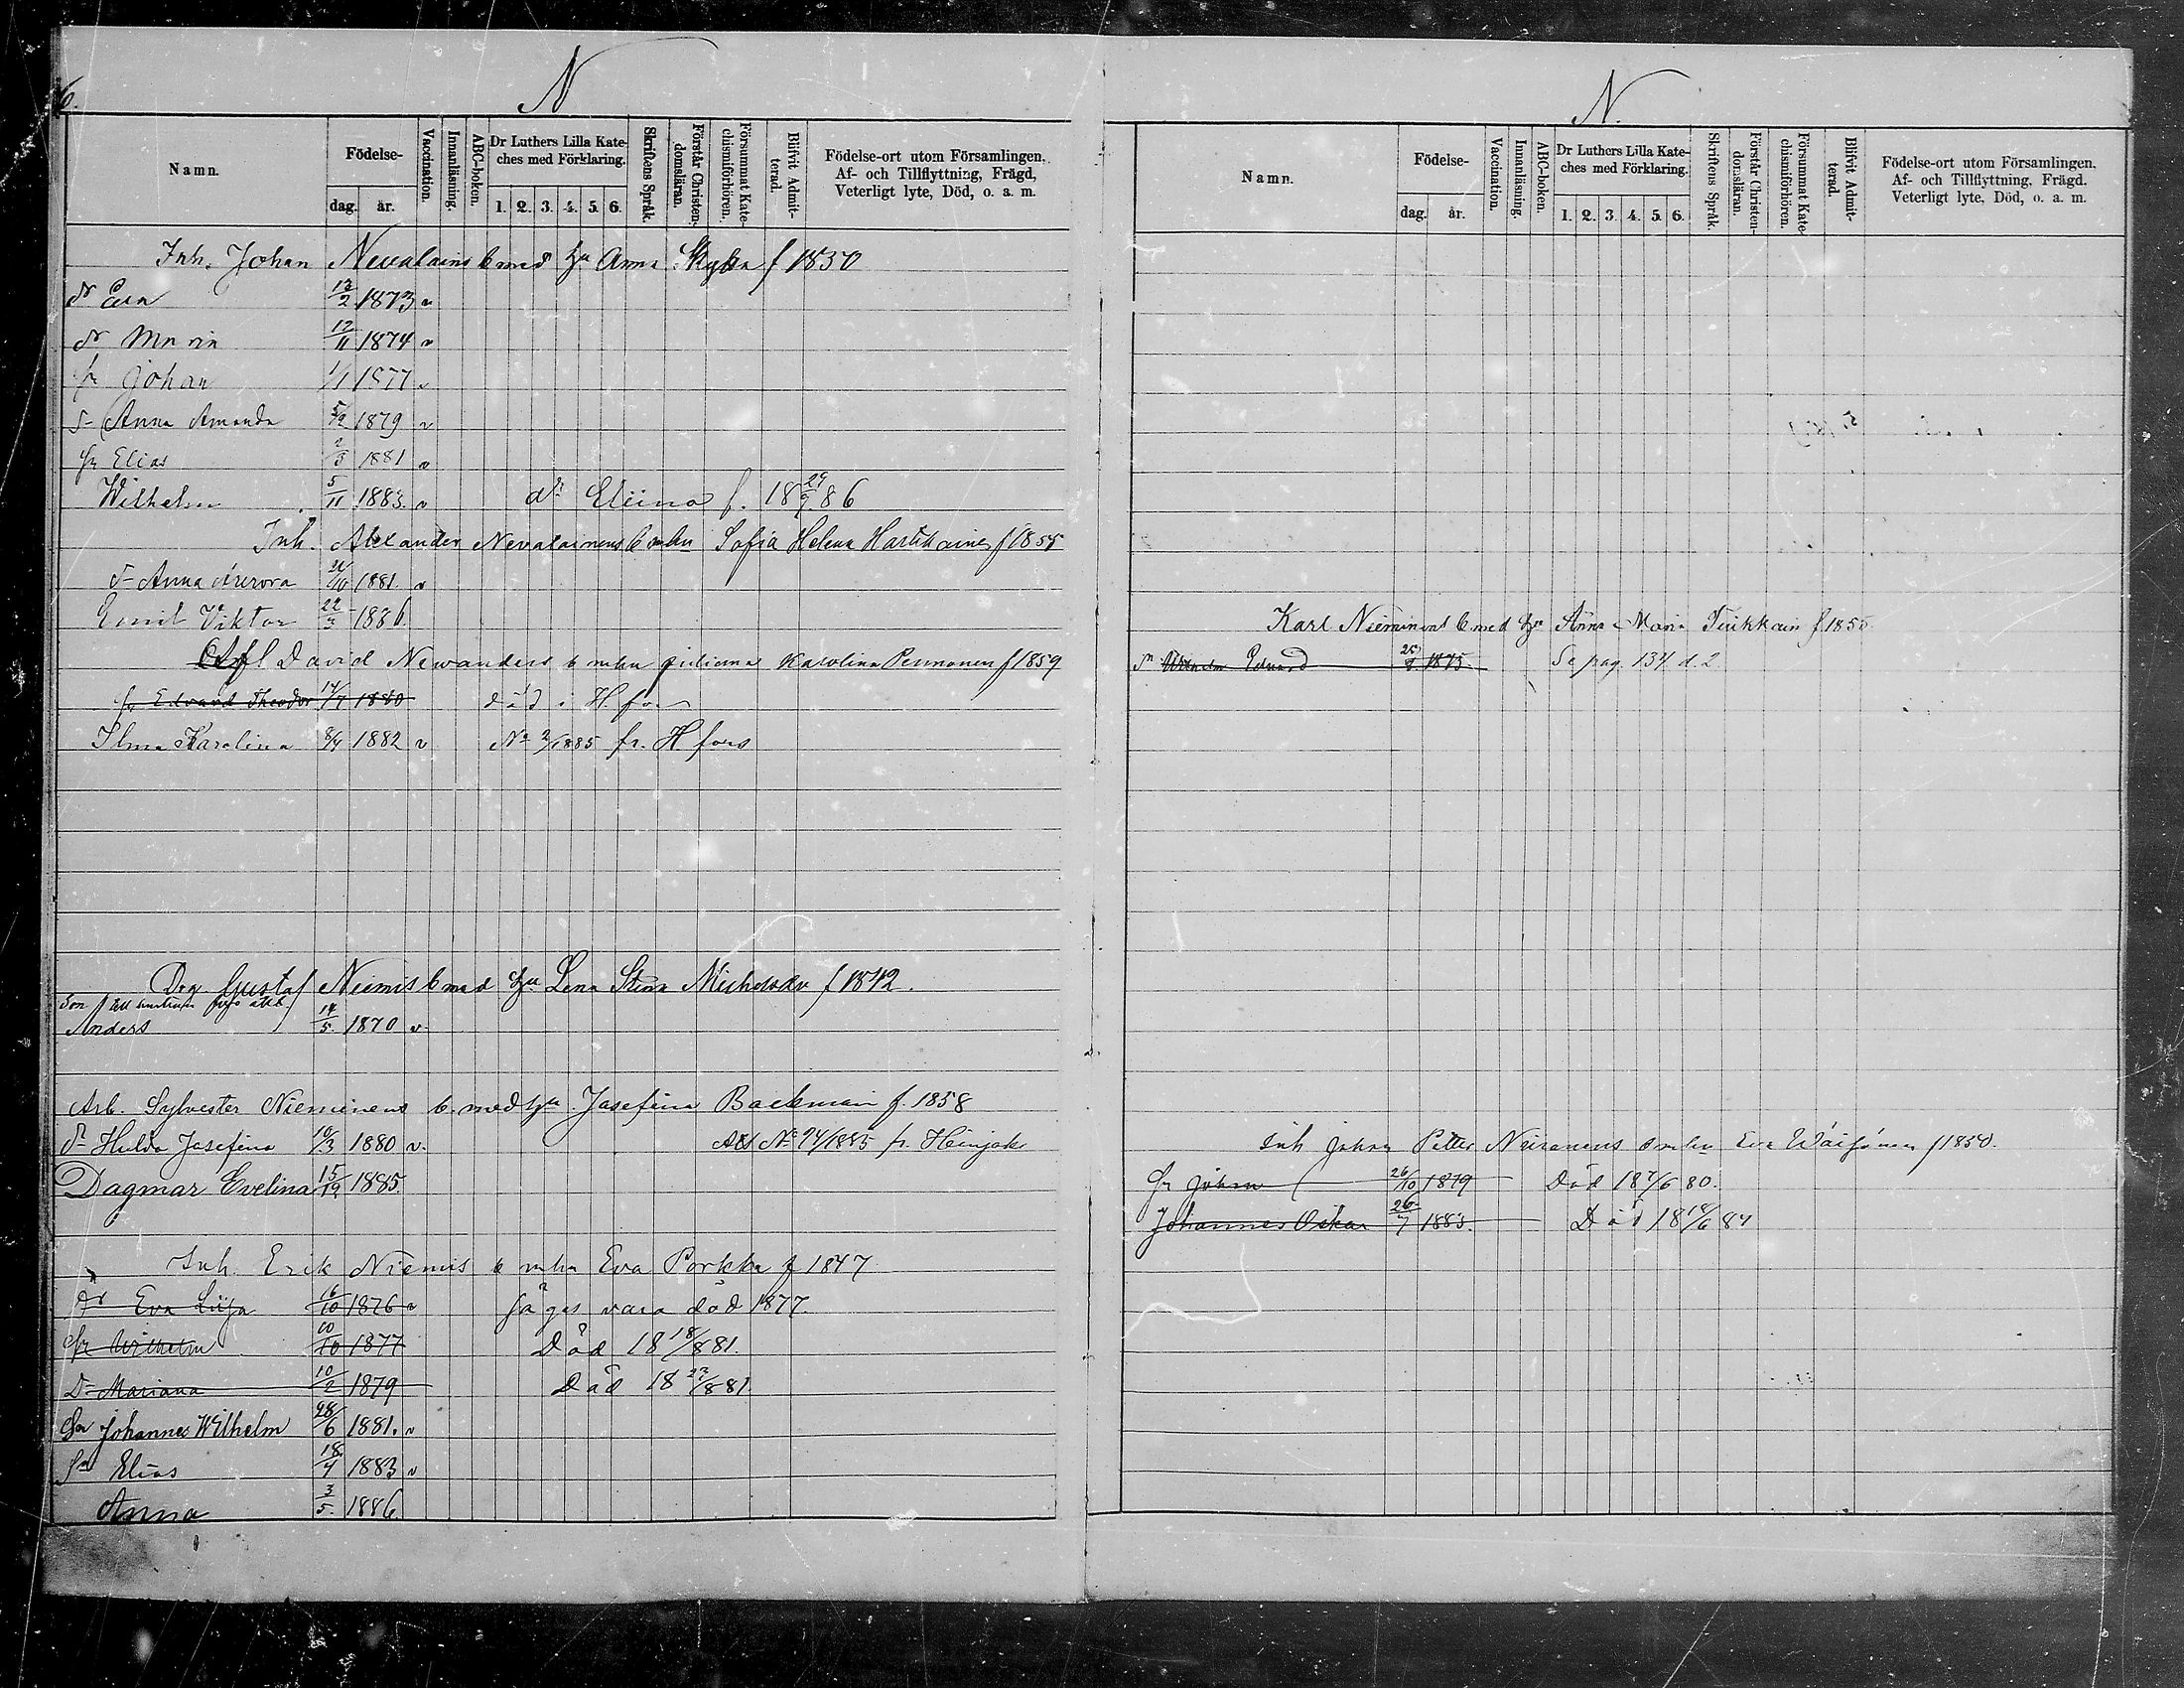 6.
N
Namn.
Födelse-
dag. år.
Vaccination.
Innanläsning.
ABC-boken.
Dr Luthers Lilla Kate-
ches med Förklaring.
1. 2. 3. 4. 5. 6.
Skriftens Språk.
Förstår Christen-
domsläran.
Försummat Kate-
chismiförhören.
Blifvit Admit-
terad.
Födelse-ort utom Församlingen,
Af- och Tillflyttning, Frägd,
Veterligt lyte, Död, o. a. m.
Inh. Johan Nevalains b med hu Anna f 1850
dr Eva 12/2 1873 v
dr Maria 12/11 1874 v
Johan 1/1 1877 v
Anna Amanda 5/12 1879 v
Elias 2/3 1881 v
Wilhelm 5/11 1883. v dr Eliina f. 18 29/9 86
Inh. Alexander Nevalainens b m hu Sofia Helena Hartikainen f 1855
Anna Aurora /10 1881. v
Emil Viktor 22/3 1886.
David Newanders b m hu Juliana Karolina Pennonen f 1859
Edvard Theodor 14/7 1880 död i H.fors
Ilma Karolina 8/4 1882 v No 2/1885 fr. H fors
Drg Gustaf Niemis b med hu Lena Stina Michelsdr f 1842.
Son
Anders 14/5. 1870 v.
Arb. Sylvester Nieminens b. med hu Josefina Backman f. 1858
dr Hulda Josefina 10/3 1880 v. Att No 94/1885 fr. Heinjoki
Dagmar Evelina 15/12 1885.
Inh. Erik Niemis b m hu Eva Porkka f 1847
dr Eva Liisa 16/10 1876 v Säges vara död 1877.
Wilhelm 10/10 1877 Död 18 18/8 81.
Dr Mariana 10/2 1879 Död 18 23/8 81
Sn Johannes Wilhelm 28/6 1881. v
Sn Elias 18/4 1883 v
Anna 3/5. 1886
N.
Namn.
Födelse-
dag. år.
Vaccination.
Innanläsning.
ABC-boken.
Dr Luthers Lilla Kate-
ches med Förklaring.
1. 2. 3. 4. 5. 6.
Skriftens Språk.
Förstår Christen-
domsläran.
Försummat Kate-
chismiförhören.
Blifvit Admit-
terad.
Födelse-ort utom Församlingen,
Af- och Tillflyttning, Frägd.
Veterligt lyte, Död, o. a. m.
Karl Nieminens b med hu Anna Maria f 1855
Sn Wilhelm Eduard 1875 Se pag. 134 d. 2
Inh Johan Petter b m hu Eva f 1850.
Johan 26/10 1879 Död 18 7/6 80.
Johannes Oskar 26/7 1883. Död 18 18/6 84